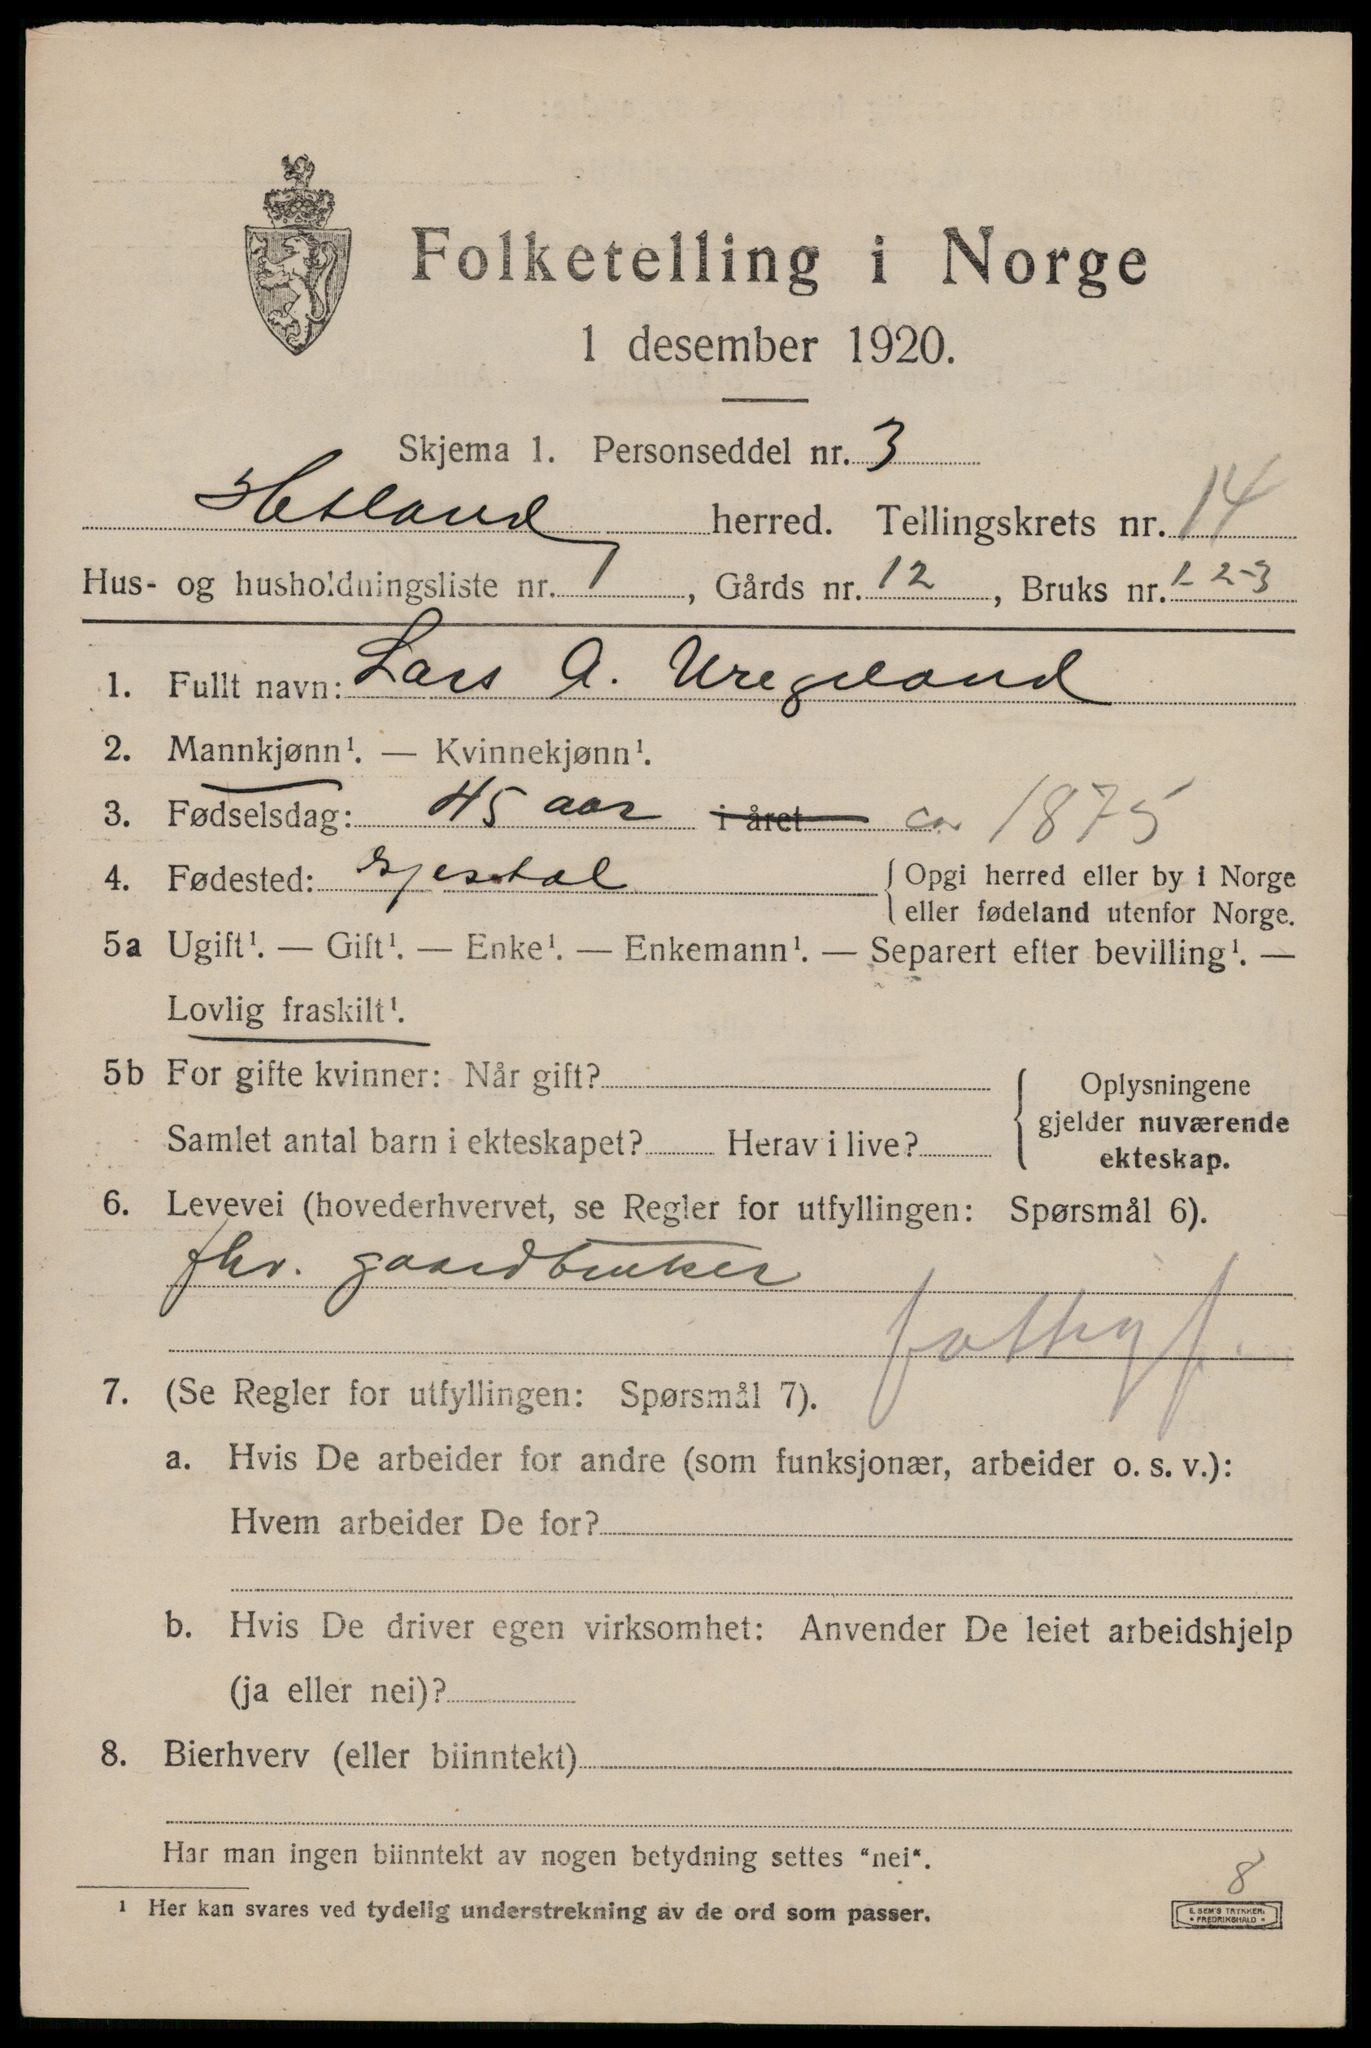 Folketelling i Norge
1 desember 1920.
Skjema 1. Personseddel nr. 3
Hetland herred. Tellingskrets nr. 14
Hus- og husholdningsliste nr. 1, Gårds nr. 12, Bruks nr. 1-2-3
1. Fullt navn: Lars A. Uregeland
2. Mannkjønn¹. — Kvinnekjønn¹.
3. Fødselsdag: 45 aar i året ca 1875
4. Fødested: Gjestal { Opgi herred eller by i Norge
eller fødeland utenfor Norge.
5a Ugift¹. — Gift¹. — Enke¹. — Enkemann¹. — Separert efter bevilling¹. —
Lovlig fraskilt¹.
5b For gifte kvinner: Når gift?
Samlet antal barn i ekteskapet? Herav i live?
{ Oplysningene
gjelder nuværende
ekteskap.
6. Levevei (hovederhvervet, se Regler for utfyllingen: Spørsmål 6).
fhv. gaardbruker
7. (Se Regler for utfyllingen: Spørsmål 7).
a. Hvis De arbeider for andre (som funksjonær, arbeider o. s. v.):
Hvem arbeider De for?
b. Hvis De driver egen virksomhet: Anvender De leiet arbeidshjelp
(ja eller nei)?
8. Bierhverv (eller biinntekt)
Har man ingen biinntekt av nogen betydning settes "nei".
8
¹ Her kan svares ved tydelig understrekning av de ord som passer.
E. SEM'S TRYKKERI
* FREDRIKSHALD *